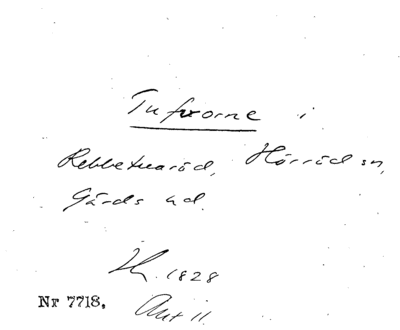 Tufvorne i
Rebbetuaröd, Hörröd sn,
Gärds hd.
Hr. 1828
Nr 7718, Avt 11